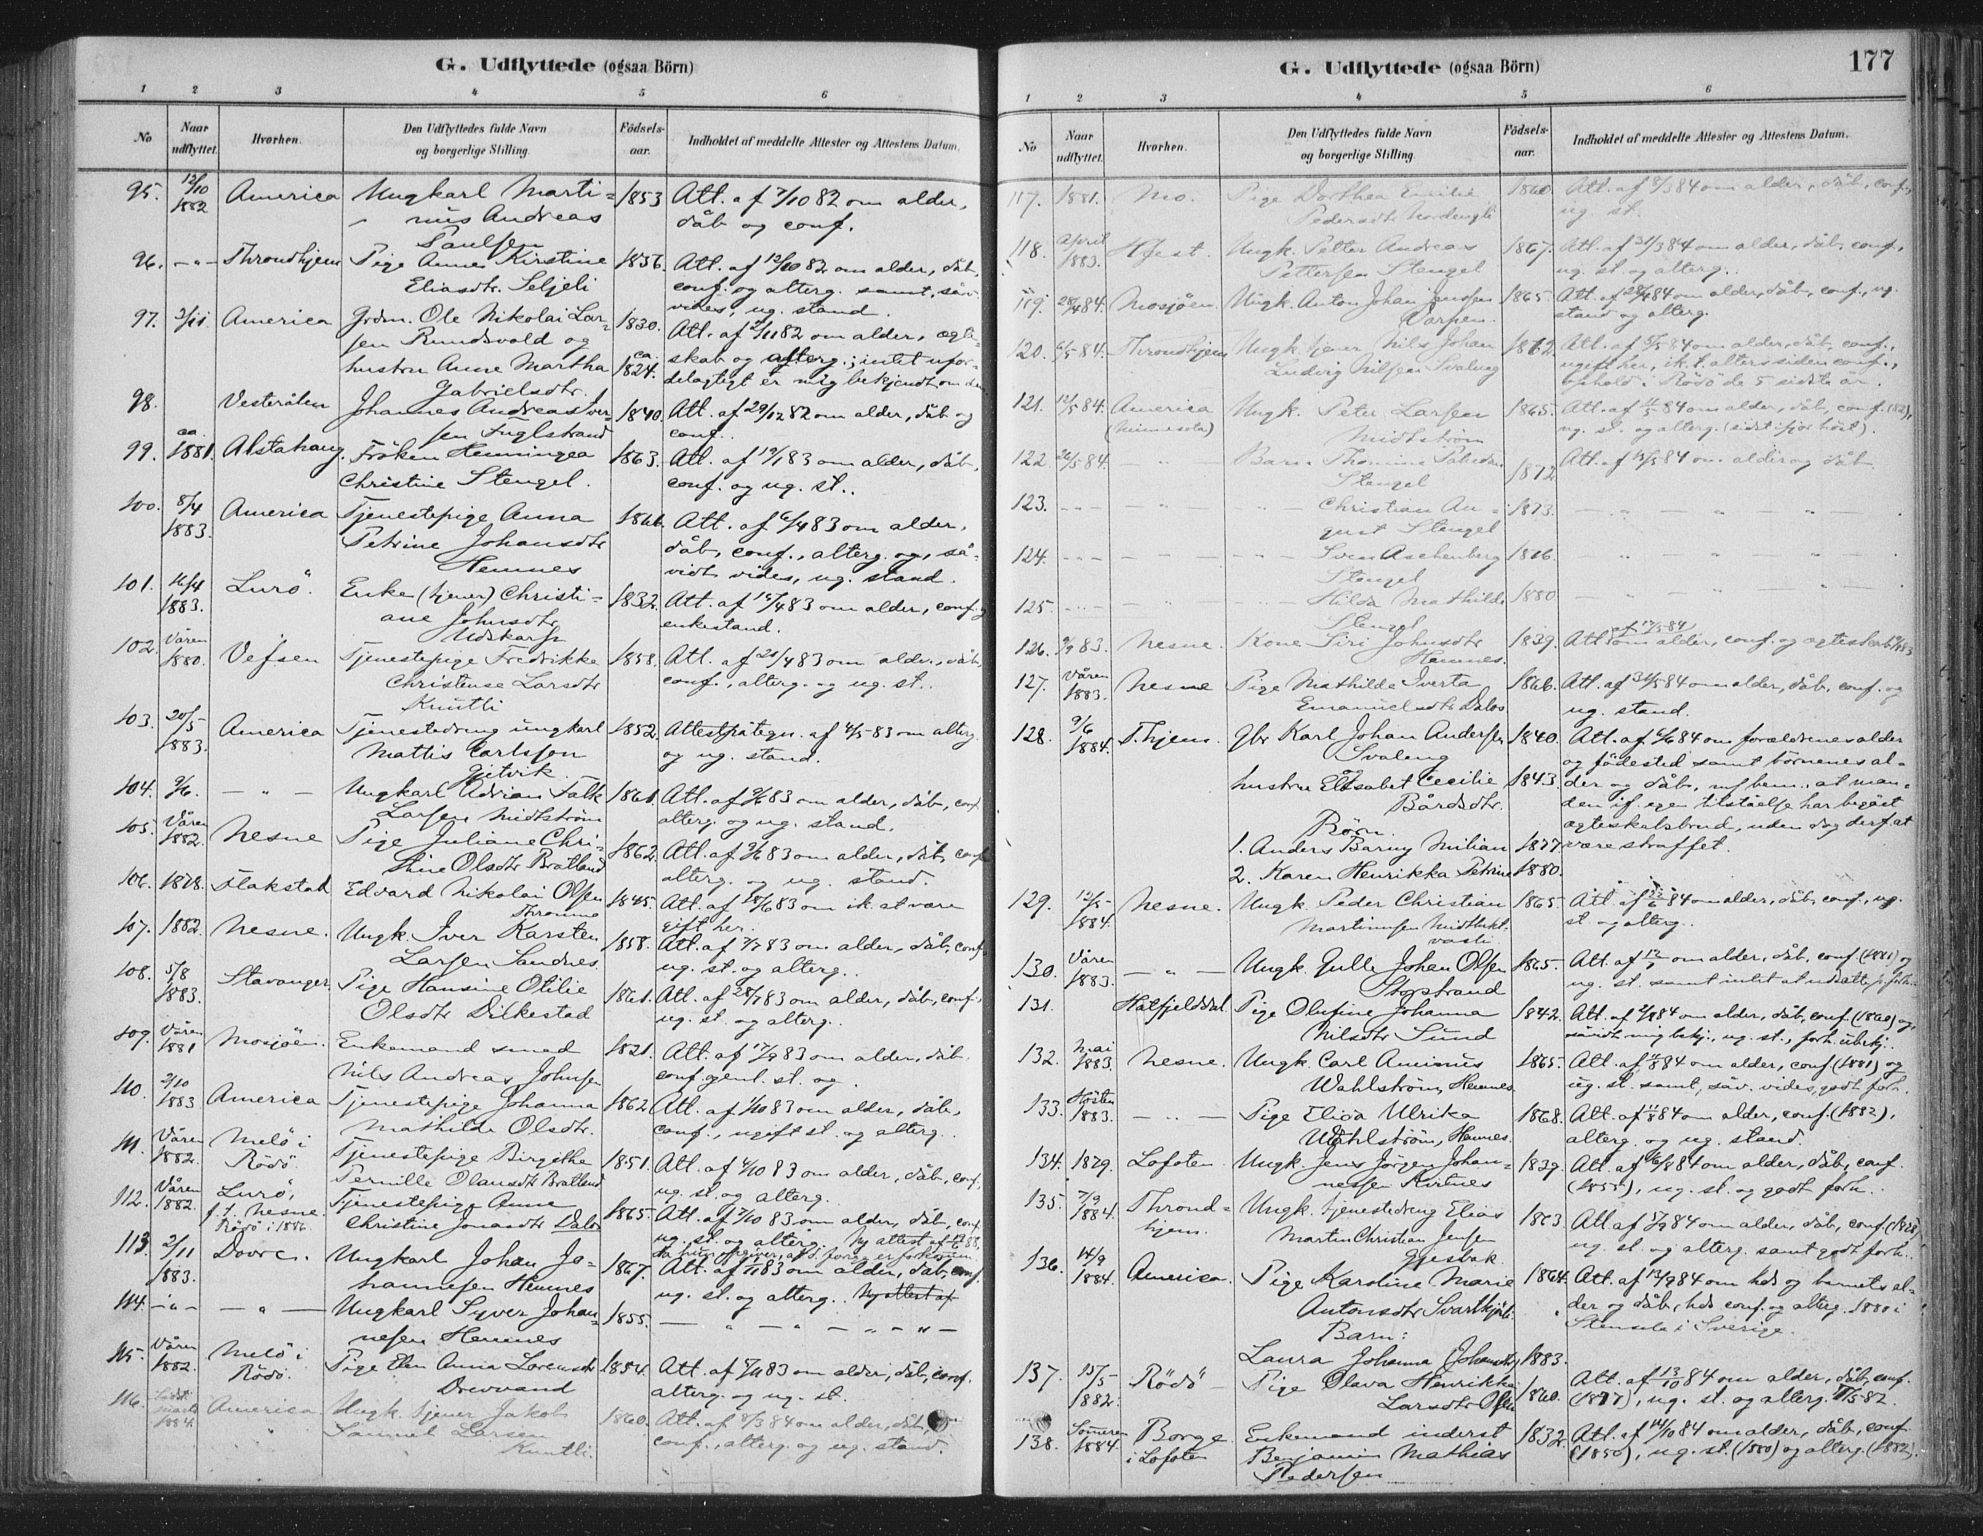 G. Udflyttede (ogsaa Börn)
1 2 3 4 5 6
No Naar udflyttet. Hvorhen. Den Udflyttedes fulde Navn og borgerlige Stilling. Födsels-aar. Indholdet af meddelte Attester og Attestens Datum.
95. 12/10 1882 America Ungkarl Marti- 1853 Att. af 7/10 82 om alder,
nus Andreas dåb og conf.
Paulsen
96. -"- Throndhjem Pige Anne Kirstine 1836. Att. af 12/10 82 om alder, dåb,
Eliasdtr. Seljeli conf. og alterg. samt, såv.
vides, ug. stand.
97. America Grdm. Ole Nikolai Lar- 1830. Att. af 82 om alder, ægte-
sen Rundsvold og ca. skab og alterg.; intet ufor-
hustru Anne Martha 1824. delagtigt er mig bekjendt om dem
Gabrielsdtr.
98. Vesterålen Johannes Andreas Iver- 1840. Att. af 29/12 82 om alder, dåb og
sen Fuglstrand conf..
99. ca. 1881. Alstahaug. Fröken Henningea 1863. Att. af 19/1 83 om alder, dåb,
Christine Stengel. conf. og ug. st..
100. 8/4 1883. America Tjenestepige Anna 1866. Att. af 6/4 83 om alder,
Petrine Johansdtr dåb, conf., alterg. og, så-
Hemnes vidt vides, ug. stand.
101. 16/4 1883. Lurö. Enke (tjener) Christi- 1832. Att. af 83 om alder, conf. og
ane Johnsdtr enkestand.
Udskarp
102. Våren 1880. Vefsen Tjenestepige Fredrikke 1858. Att. af 20/4 83 om alder, dåb,
Christense Larsdtr conf., alterg. og ug. st..
Kuntli
103. 20/5 1883. America Tjenestedreng ungkarl 1852. Attestpåtegn. af 4/5 83 om alterg.
Mattis Carlsson og ug. stand.
Gjetvik.
104. 9/6. - " - Ungkarl Adrian Falk 1861. Att. af 83 om alder, dåb, conf.
Larsen Midtström alterg. og ug. stand.
105. Våren 1882. Nesne Pige Juliane Chri- 1862. Att. af 83 om alder, dåb, conf.
stine Olsdtr Bratland alterg. og ug. stand.
106. 1878. Flakstad Edvard Nikolai Olsen 1845. Att. af 18/6 83 om ik. at være
gift her.
107. 1882. Nesne. Ungk. Iver Karsten 1858. Att. af 83 om alder, dåb, conf.
Larsen Sandnes. ug. st. og alterg..
108. 5/8 1883. Stavanger. Pige Hansine Otilie 1861. Att. af 28/7 83 om alder, dåb, conf.,
Olsdtr Dilkestad ug. st. og alterg..
109. Våren 1881 Mosjöen. Enkemand smed 1821. Att. af 17/9 83 om alder, dåb,
Nils Andreas Johnsen
110. 2/10 1883 America Tjenestepige Johanna 1862. Att. af 1/10 83 om alder, dåb,
Mathilde Olsdtr. conf., ugift st. og alterg..
111. Våren 1882. Melö i Rödö. Tjenestepige Birgithe 1851. Att. af 83 om alder, dåb, conf.,
Pernille Olausdtr Bratland ug. st. og alterg.
112. Våren 1882. Lurö, f.t. Nesne. Rödö i 1886. Tjenestepige Anne 1865. Att. af 83 om alder, dåb, conf.
Christine Jonasdtr Dalos ug. st. og alterg. Ny attest af 88,
da hun opgiver, at d. forrige er forkommen
113. 2/11 1883. Dovre. Ungkarl Johan Jo- 1867. Att. af 83 om alder, dåb, conf.
hannesen Hemnes ug. st. og alterg.. Ny attest af
114. -"- - " - Ungkarl Syver Johan- 1855. - " - " - " - " -
nesen Hemnes
115. Våren 1882. Melö i Rödö. Pige Elen Anna Lorensdtr 1854. Att. af 83 om alder, dåb, conf.
Drevvand alterg. og ug. st.
116. Sidst marts 1884. America Ungk. tjener Jakob 1860. Att. af 8/3 84 om alder, dåb,
Samuel Larsen conf., alterg. og ug. stand.
Kuntli.
G. Udflyttede (ogsaa Börn) 177
1 2 3 4 5 6
No Naar udflyttet. Hvorhen. Den Udflyttedes fulde Navn og borgerlige Stilling. Födsels-aar. Indholdet af meddelte Attester og Attestens Datum.
117. 1881. Mo. Pige Dorthea Emilie 1860 Att. af 8/3 84 om alder, dåb, conf.,
Pedersdtr Nordengli ug. st.
118. April 1883. Ungk. Petter Andreas 1867. Att. af 31/3 84 om alder, dåb, conf.,
Pettersen Stengel ug. st. og alterg..
119. 28/4 84. Mosjöen Ungk. Anton Johan Jensen 1865. Att. af 28/4 84 om alder, dåb, conf., ug.
stand og alterg.
120. 6/5 84. Throndhjem Ungk. tjener Nils Johan 1862. Att. af 84 om alder, dåb, conf.,
Ludvig Nilsen Svaleng ugift her, ik. t. alters siden conf.,
ophold i Rödö de 5 sidste år.
121. 12/5 84. America (Minnesota) Ungk. Peter Larsen 1865. Att. af 84 om alder, dåb, conf. (82),
Midtström ug. st. og alterg. (sidst ifjor höst).
122. 26/5 84. - " Barn Thomine 1872 Att. af 84 om alder og dåb
Stengel
123. - - - - " - Christian Au- 1873. - " -
gust Stengel
124. - - - - " - Sven Aschenberg
Stengel
125. - - - - " - Hilda Mathilde 1880
Stengel
126. 83. Nesne. Kone Siri Johnsdtr 1839. Att. om alder, conf. og ægteskab
Hemnes.
127. Våren 1883. Nesne Pige Mathilde Iverta 1866. Att. af 31/5 84 om alder, dåb, conf. og
Emanuelsdtr Dalos ug. stand.
128. 9/6 1884. Thjem. Gbr Karl Johan Andersen 1840. Att. af 84 om forældrenes alder
Svaleng og födested samt börnenes al-
hustru Elisabet Cecilie 1843. der og dåb, m/ bem. at man-
Bårdsdtr. den if. egen tilståelse har begået
Börn. ægteskabsbrud, uden dog derf. at
1. Anders Barny Milian 1877 være straffet.
2. Karen Henrikka Petrine 1880.
129. 12/5 1884. Nesne. Ungk. Peder Christian 1865 Att. af 84 om alder, dåb, conf., ug.
Martinusen st. og alterg..
130. Våren 1883. - " - Ungk. Gulle Johan Olsen 1865. Att. af om alder, dåb, conf. (1881) og
ug. st. samt intet at udsætte p. forh.
131. Hatfjelddal. Pige Olufine Johanna 1842. Att. af 84 om alder, dåb, conf. (1860) og,
Nilsdtr Sund såvidt mig bekj., ug. st., forh. ubekj..
132. Mai 1883. Nesne. Ungk. Carl Aminus 1865. Att. af 84 om alder, conf. (1881) og
Wahlström, Hemnes. ug. st. samt, såv. vides, godt forh.
133. Hösten 1883. - " - Pige Elida Ulrika 1868. Att. af 84 om alder, conf. (1882),
Wahlström, Hemnes. alterg. og ug. stand.
134. 1879. Lofoten. Ungk. Jens Jörgen Johan- 1839. Att. af 84 om alder, dåb, conf.
nesen Kvitnes (1855), ug. st. og godt forh..
135. 7/9 1884. Throndhjem. Ungk. tjenestedreng Elias 1863. Att. af 84 om alder, dåb, conf.
Martin Christian Jensen ug. st. og alterg. samt godt forh..
Gjesbak
136. 14/9 1884. America. Pige Karoline Marie 1864. Att. af 13/9 84 om hds og barnets al-
Antonsdtr Svartkjönli. der og dåb, hds conf. og alterg. 1880 i
Barn: Stensele i Sverige.
Laura Johanna Johansdtr 1883.
137. 15/5 1882. Rödö Pige Olava Henrikka 1860. Att. af 13/10 84 om alder, dåb, conf.
Larsdtr (1877), ug. st. og alterg. 82.
138. Sommeren 1884. Borge i Lofoten Enkemand inderst 1832. Att. af 14/10 84 om alder, dåb, conf.
Benjamin Mathias (1850), ug. st. (1880) og alterg. (1882).
Pedersen